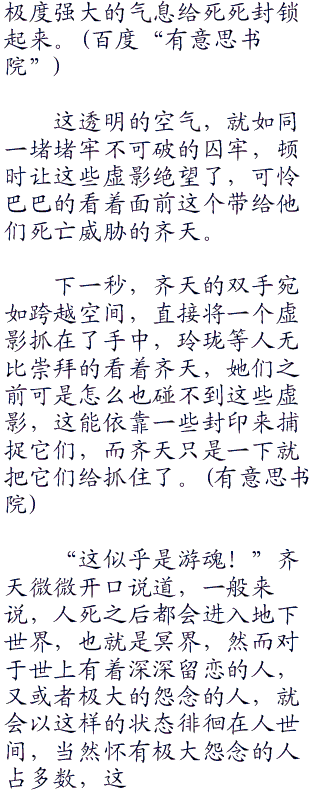 极度强大的气息给死死封锁
起来。(百度“有意思书
院”)
这透明的空气，就如同
一堵堵牢不可破的囚牢，顿
时让这些虚影绝望了，可怜
巴巴的看着面前这个带给他
们死亡威胁的齐天。
下一秒，齐天的双手宛
如跨越空间，直接将一个虚
影抓在了手中，玲珑等人无
比崇拜的看着齐天，她们之
前可是怎么也碰不到这些虚
影，这能依靠一些封印来捕
捉它们，而齐天只是一下就
把它们给抓住了。(有意思书
院)
“这似乎是游魂！”齐
天微微开口说道，一般来
说，人死之后都会进入地下
世界，也就是冥界，然而对
于世上有着深深留恋的人，
又或者极大的怨念的人，就
会以这样的状态徘徊在人世
间，当然怀有极大怨念的人
占多数，这